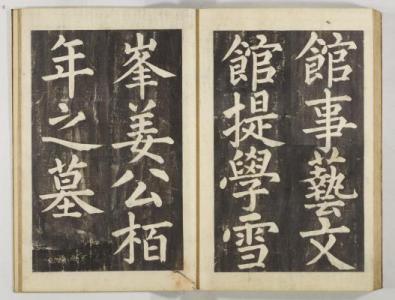 館事藝文
館提學雪
峯姜公栢
年之墓